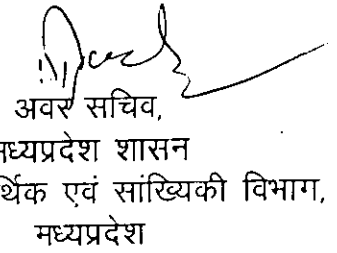 अवर सचिव,
मध्यप्रदेश शासन
र्थिक एवं सांख्यिकी विभाग,
मध्यप्रदेश